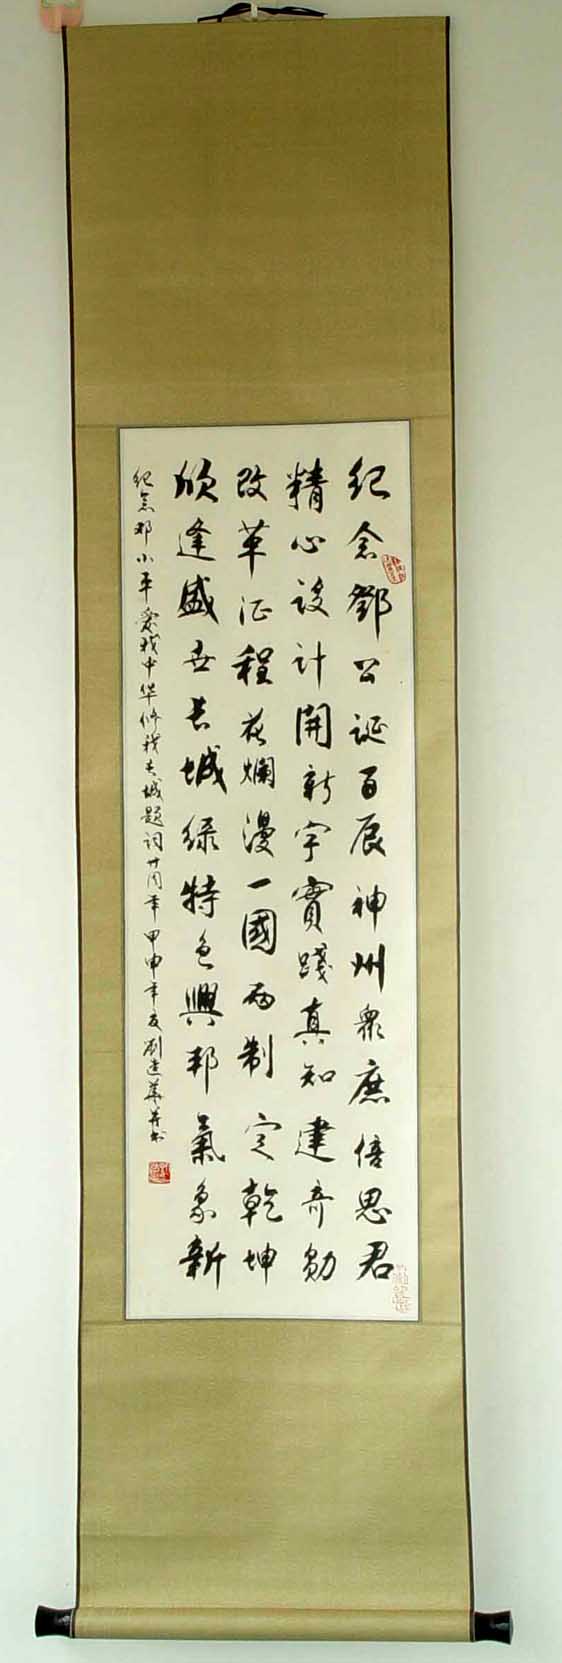 紀念鄧公誕百辰神州衆庶倍思君
精心設計開新宇實踐真知建奇勛
改革征程花爛漫一國两制定乾坤
欣逢盛世長城綠特色興邦氣象新
纪念邓小平爱我中华修我长城題词廿周年甲申年夏刘建華并书